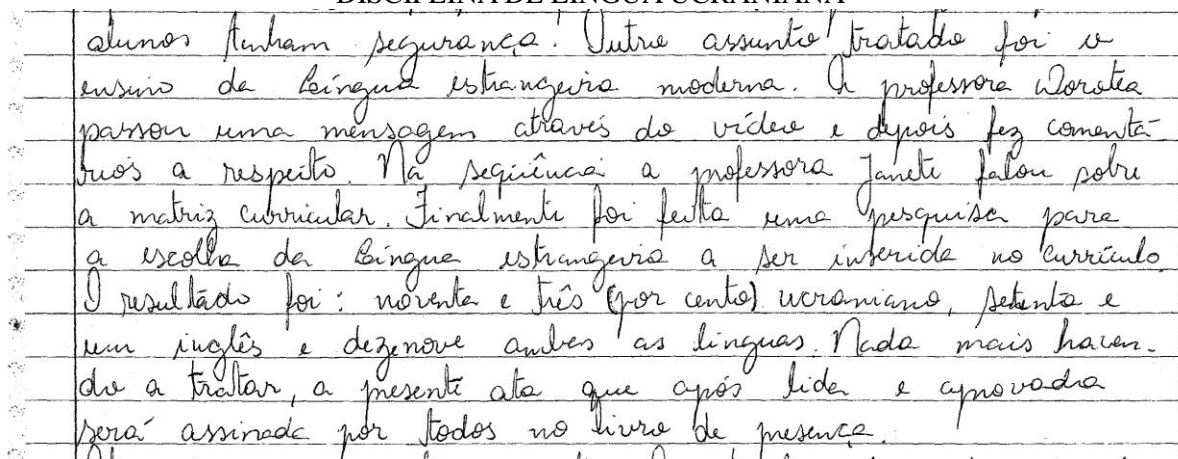 DISCIPLINA DE LÍNGUA UCRANIANA
alunos tenham segurança. Outro assunto tratado foi o
ensino da Língua estrangeira moderna. A professora Dorotea
passou uma mensagem através do vídeo e depois fez comentá-
rios a respeito. Na seqüência a professora Janete falou sobre
a matriz curricular. Finalmente foi feita uma pesquisa para
a escolha da Língua estrangeira a ser inserida no currículo
O resultado foi: noventa e três (por cento) ucraniano, setenta e
um inglês e dezenove ambas as línguas. Nada mais haven-
do a tratar, a presente ata que após lida e aprovada
será assinada por todos no livro de presença.